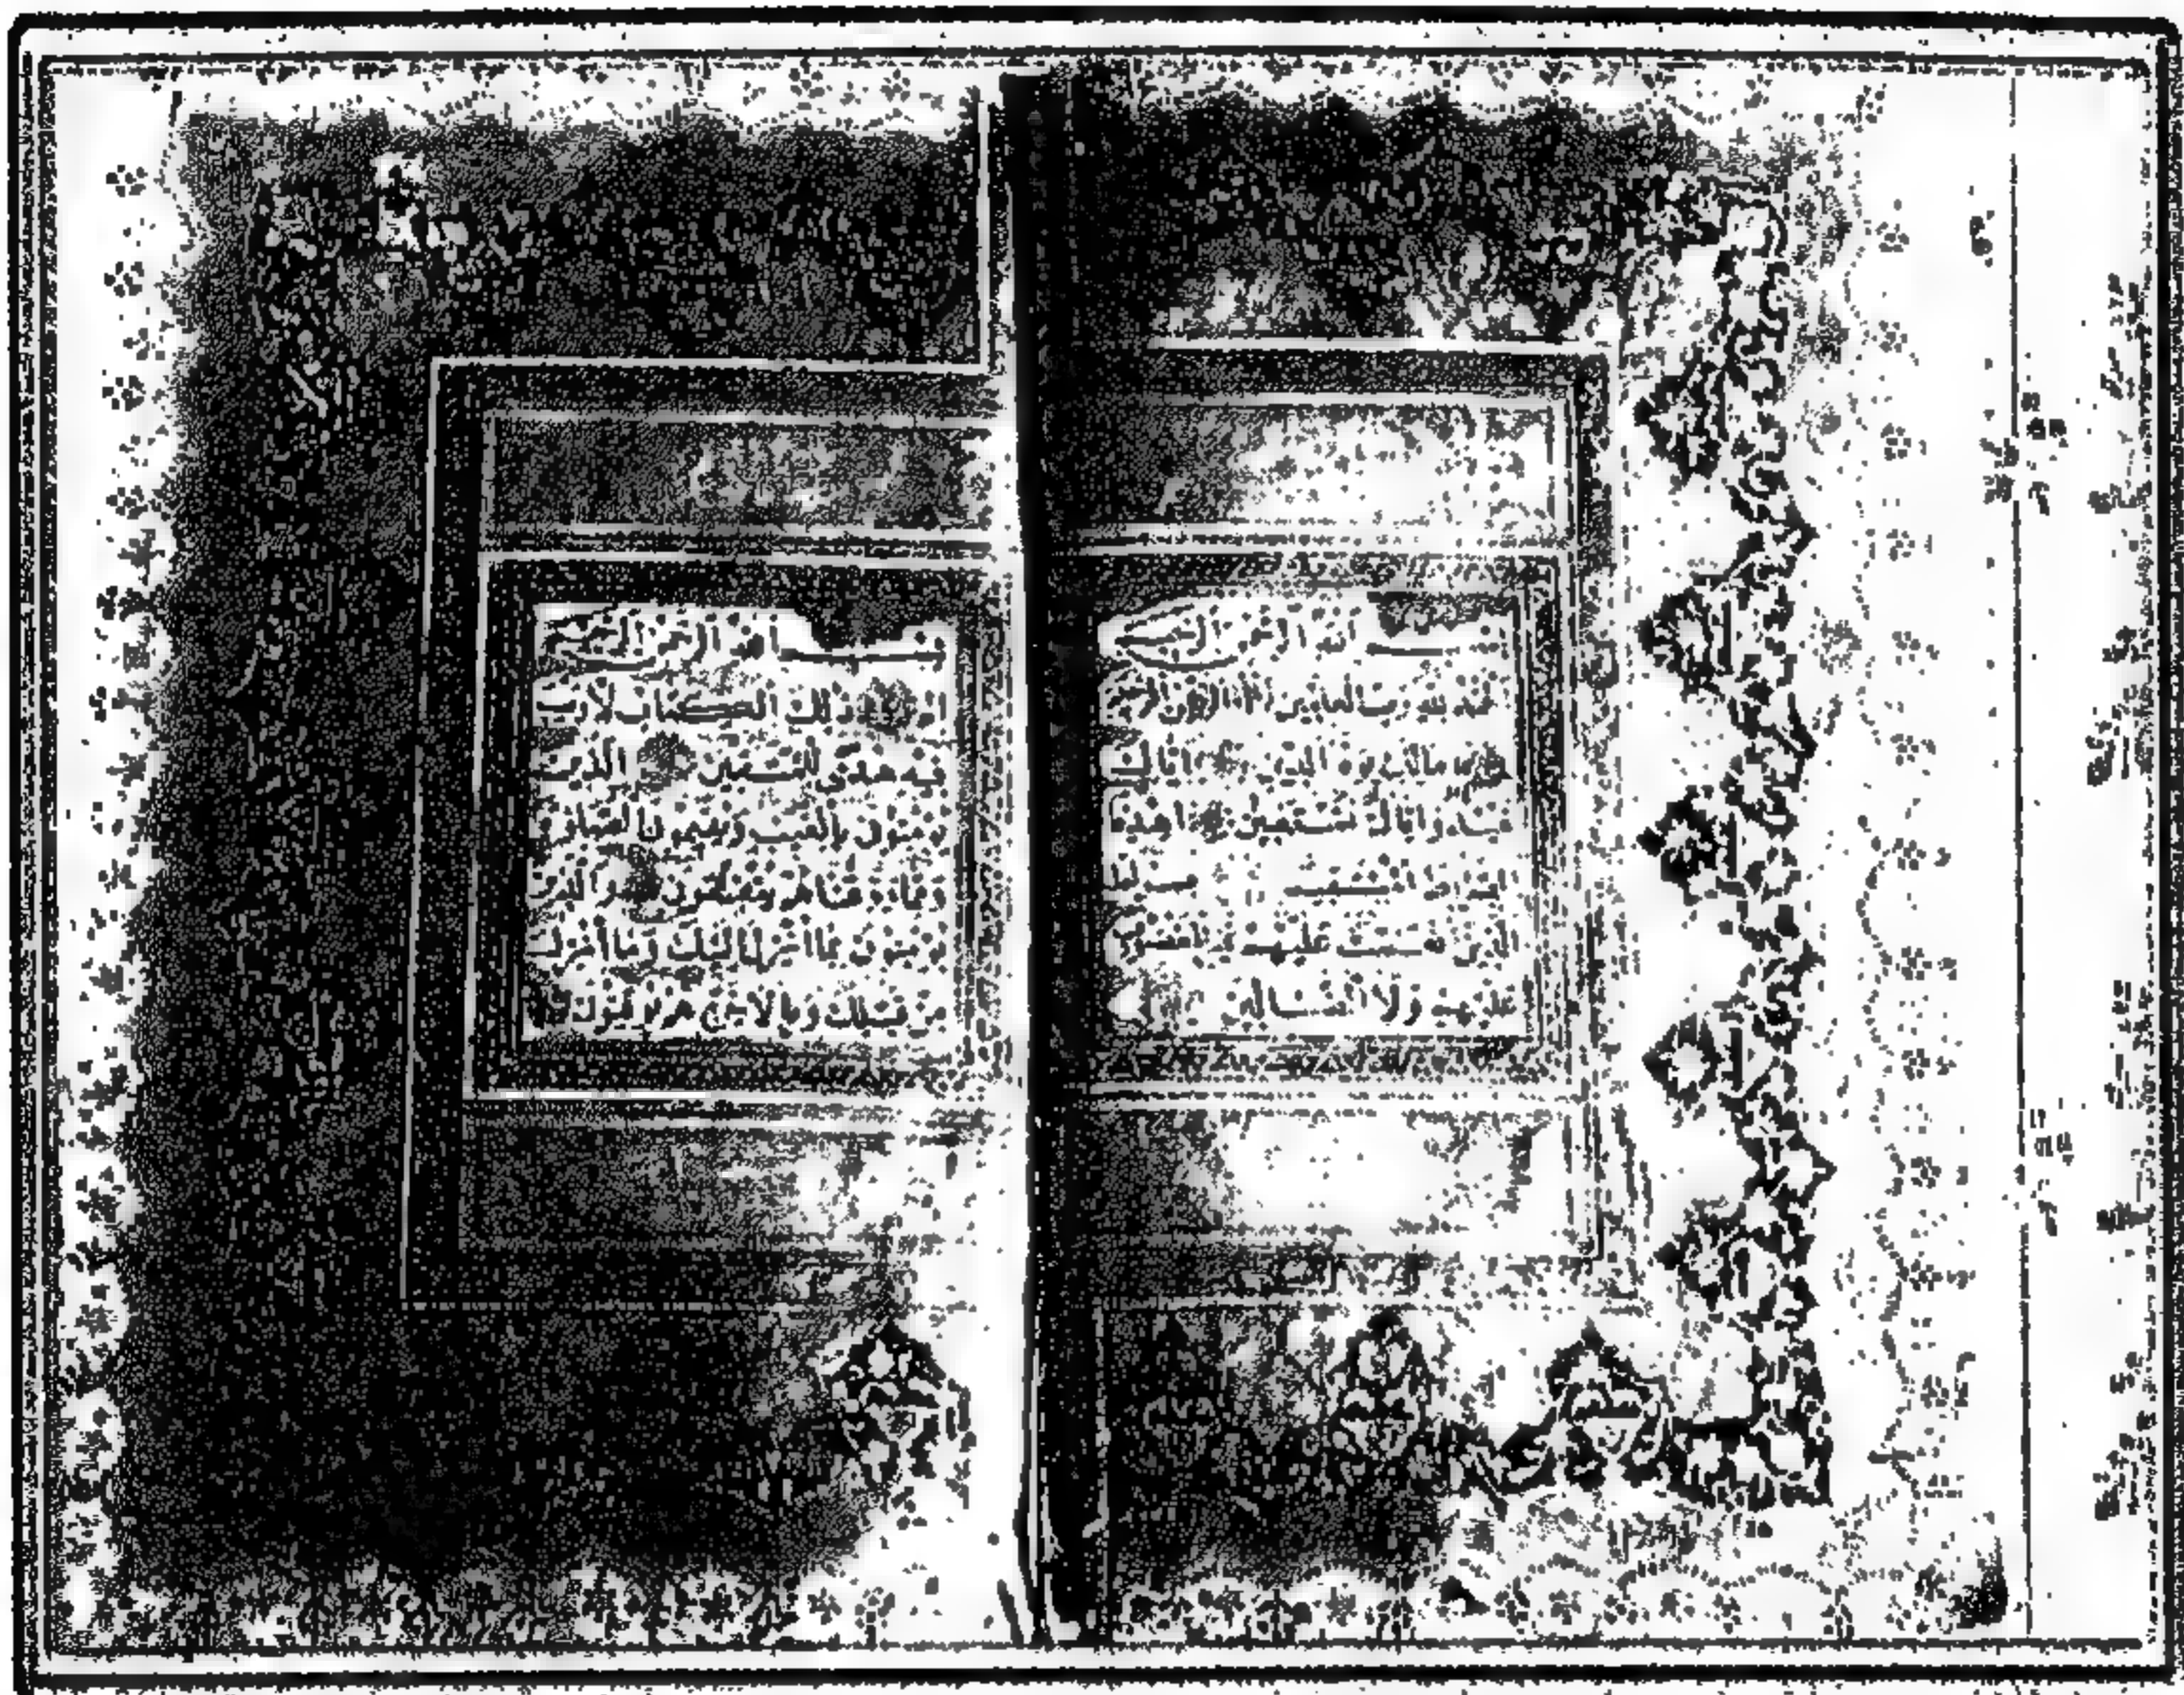 بسم الله الرحمن الرحيم
الحمد لله رب العالمين الرحمن الرحيم
مالك يوم الدين اياك
نعبد واياك نستعين اهدنا
الصراط المستقيم صراط
الذين انعمت عليهم غير المغضوب
عليهم ولا الضالين
بسم الله الرحمن الرحيم
الم ذلك الكتاب لا ريب
فيه هدى للمتقين الذين
يؤمنون بالغيب ويقيمون الصلوة
ومما رزقناهم ينفقون والذين
يؤمنون بما أنزل اليك وما أنزل
من قبلك وبالاخرة هم يوقنون